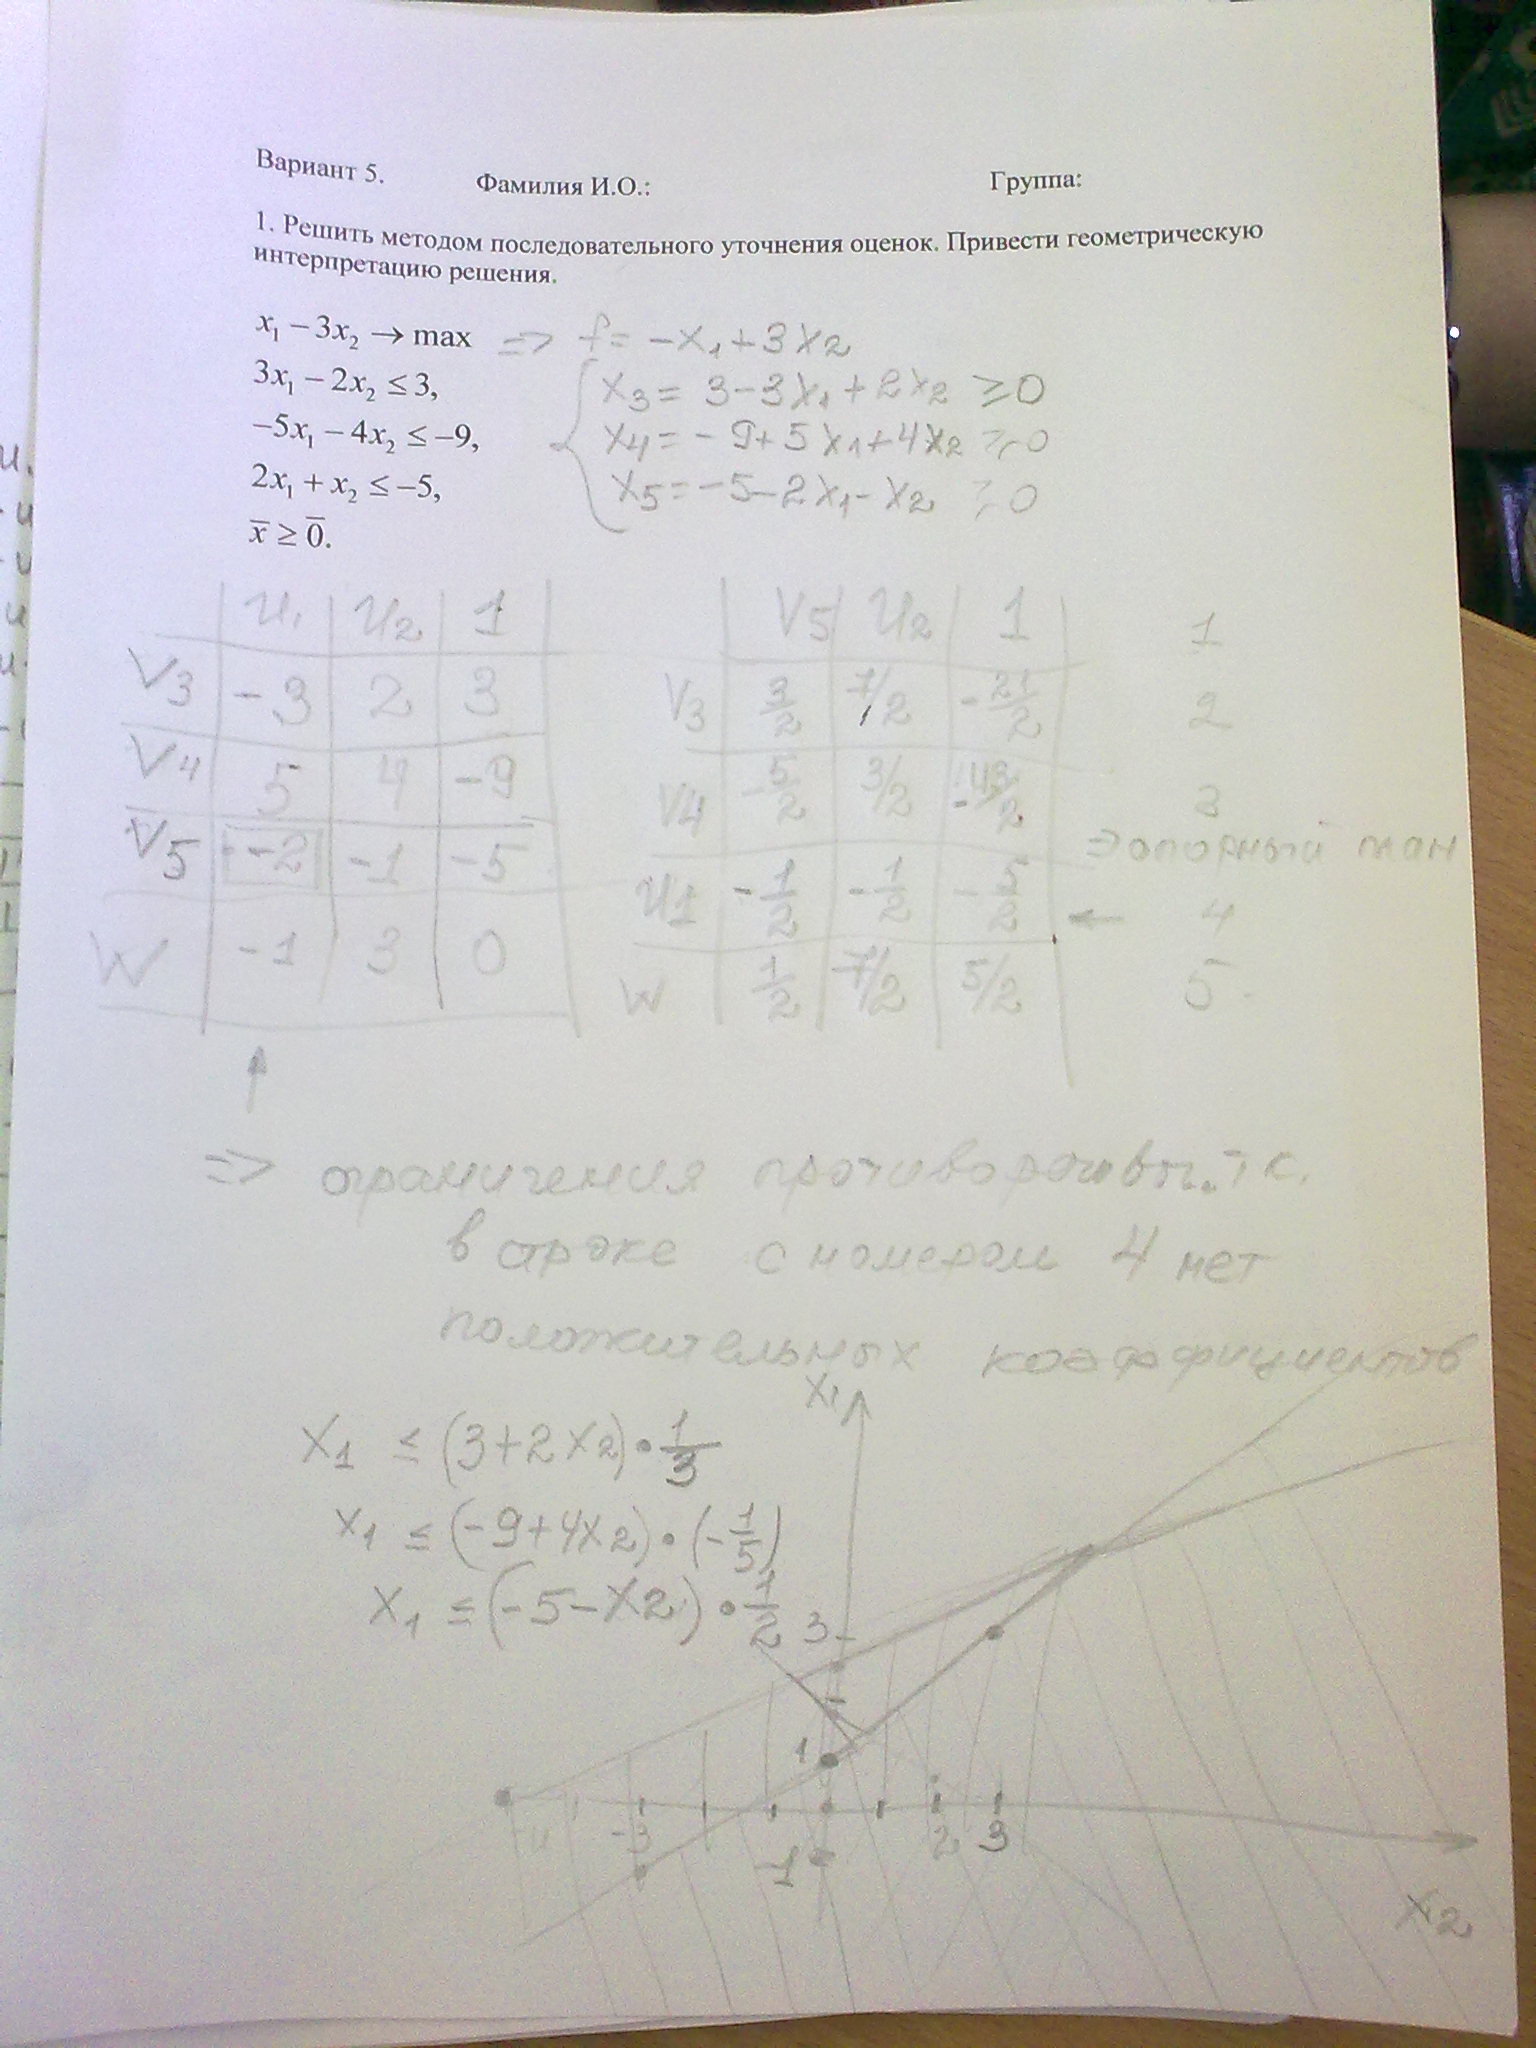 Вариант 5. Фамилия И.О.: Группа:
1. Решить методом последовательного уточнения оценок. Привести геометрическую
интерпретацию решения.
x₁ − 3x₂ → max => f = −x₁ + 3x₂
3x₁ − 2x₂ ≤ 3, x₃ = 3 − 3x₁ + 2x₂ ≥ 0
−5x₁ − 4x₂ ≤ −9, x₄ = −9 + 5x₁ + 4x₂ ≥ 0
2x₁ + x₂ ≤ −5, x₅ = −5 − 2x₁ − x₂ ≥ 0
x̅ ≥ 0̅.
u₁ u₂ 1
V3 −3 2 3
V4 5 4 −9
V5 −2 −1 −5
W −1 3 0
V5 u₂ 1 1
V3 3/2 7/2 −21/2 2
V4 −5/2 3/2 −43/2 3
=> опорный план
u1 −1/2 −1/2 −5/2 ← 4
W 1/2 −7/2 5/2 5
=> ограничения противоречивы, т.к.
в строке с номером 4 нет
положительных коэффициентов
x₁ ≤ (3 + 2x₂) • 1/3
x₁ ≤ (−9 + 4x₂) • (−1/5)
x₁ ≤ (−5 − x₂) • 1/2
x₁
3
1
−4 −3 2 3
−1
x₂